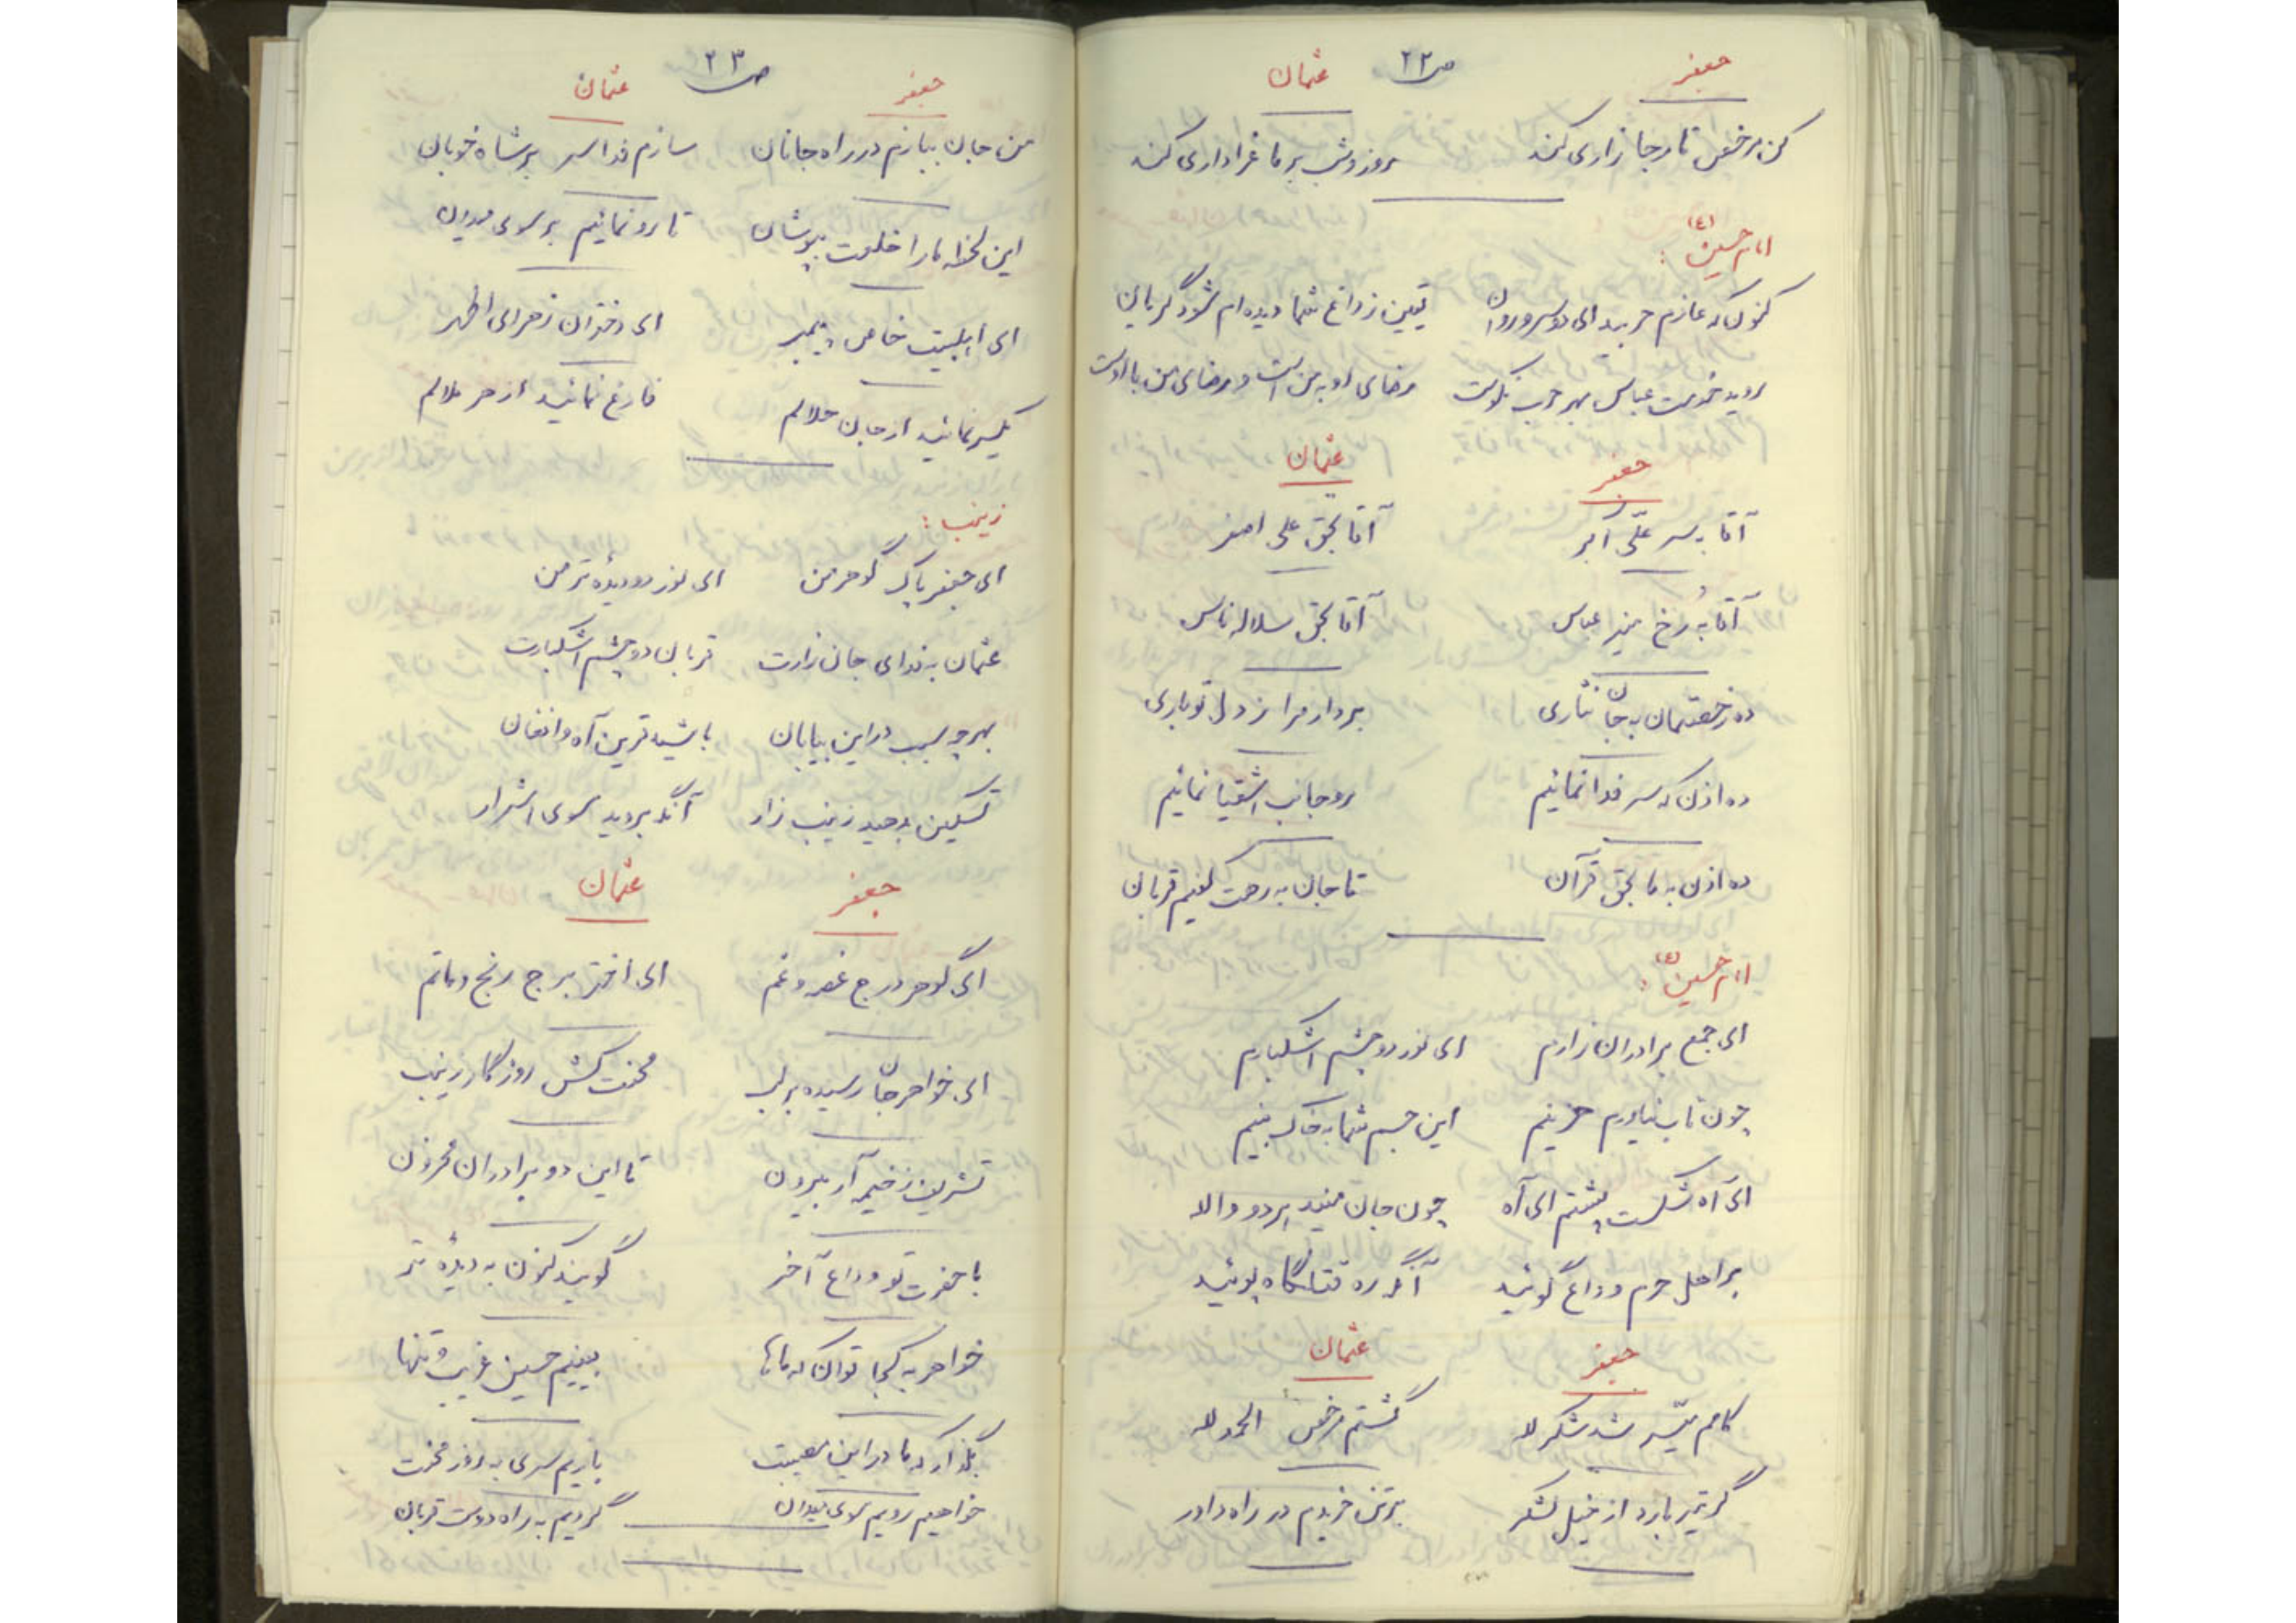 ص ۲۲
جعفر عثمان
کن مرخص تا مرجا زاری کند روز و شب بر ما عزاداری کند
امام حسین (ع) :
کنون که عازم حربید ای دو سرو روان یقین ز داغ شما دیده ام شود گریان
روید خدمت عباس بهر حرب نکوست رضای او به من است و رضای من با اوست
جعفر عثمان
آقا بسر علی اکبر آقا بحق علی اصغر
آقا به رخ منیر عباس آقا بحق سلاله ناس
ده رخصتمان به جان نثاری بردار مرا ز دل تو باری
ده اذن که سر فدا نمائیم رو جانب اشقیا نمائیم
ده اذن به ما بحق قرآن تا جان به رهت کنیم قربان
امام حسین (ع) :
ای جمع برادران زارم ای نور دو چشم اشکبارم
چون تاب بیاورم حزینم این جسم شما به خاک بینم
ای آه شکست پشتم ای آه چون جان منید هر دو والا
بر اهل حرم وداع گوئید آنگه ره قتلگاه پوئید
جعفر عثمان
کامم میسر شد شکر لله گشتم مرخص الحمد لله
گر تیر بارد از خیل لشکر بر تن خریدم در راه داور
ص ۲۳
جعفر عثمان
من جان ببازم در راه جانان سازم فدا سر بر شاه خوبان
این لحظه ما را خلعت بپوشان تا رو نمائیم بر سوی میدان
ای اهلبیت خاص پیمبر ای دختران زهرای اطهر
یکسر نمائید از جان حلالم فارغ نمائید از هر ملالم
زینب :
ای جعفر پاک گوهر من ای نور دو دیده تر من
عثمان به فدای جان زارت قربان دو چشم اشکبارت
بهر چه سبب در این بیابان باشید قرین آه و افغان
تسکین بدهید زینب زار آنگه بروید سوی اشرار
جعفر عثمان
ای گوهر درج غصه و غم ای اختر برج رنج و ماتم
ای خواهر جان رسیده بر لب محنت کش روزگار زینب
تشریف ز خیمه آر بیرون تا این دو برادران محزون
با حضرت تو وداع آخر گویند کنون به دیدهٔ تر
خواهر به کجا توان که ماها بینیم حسین غریب و تنها
بگذار که ما در این مصیبت بازیم سری به روز محنت
خواهیم رویم سوی میدان گردیم به راه دوست قربان